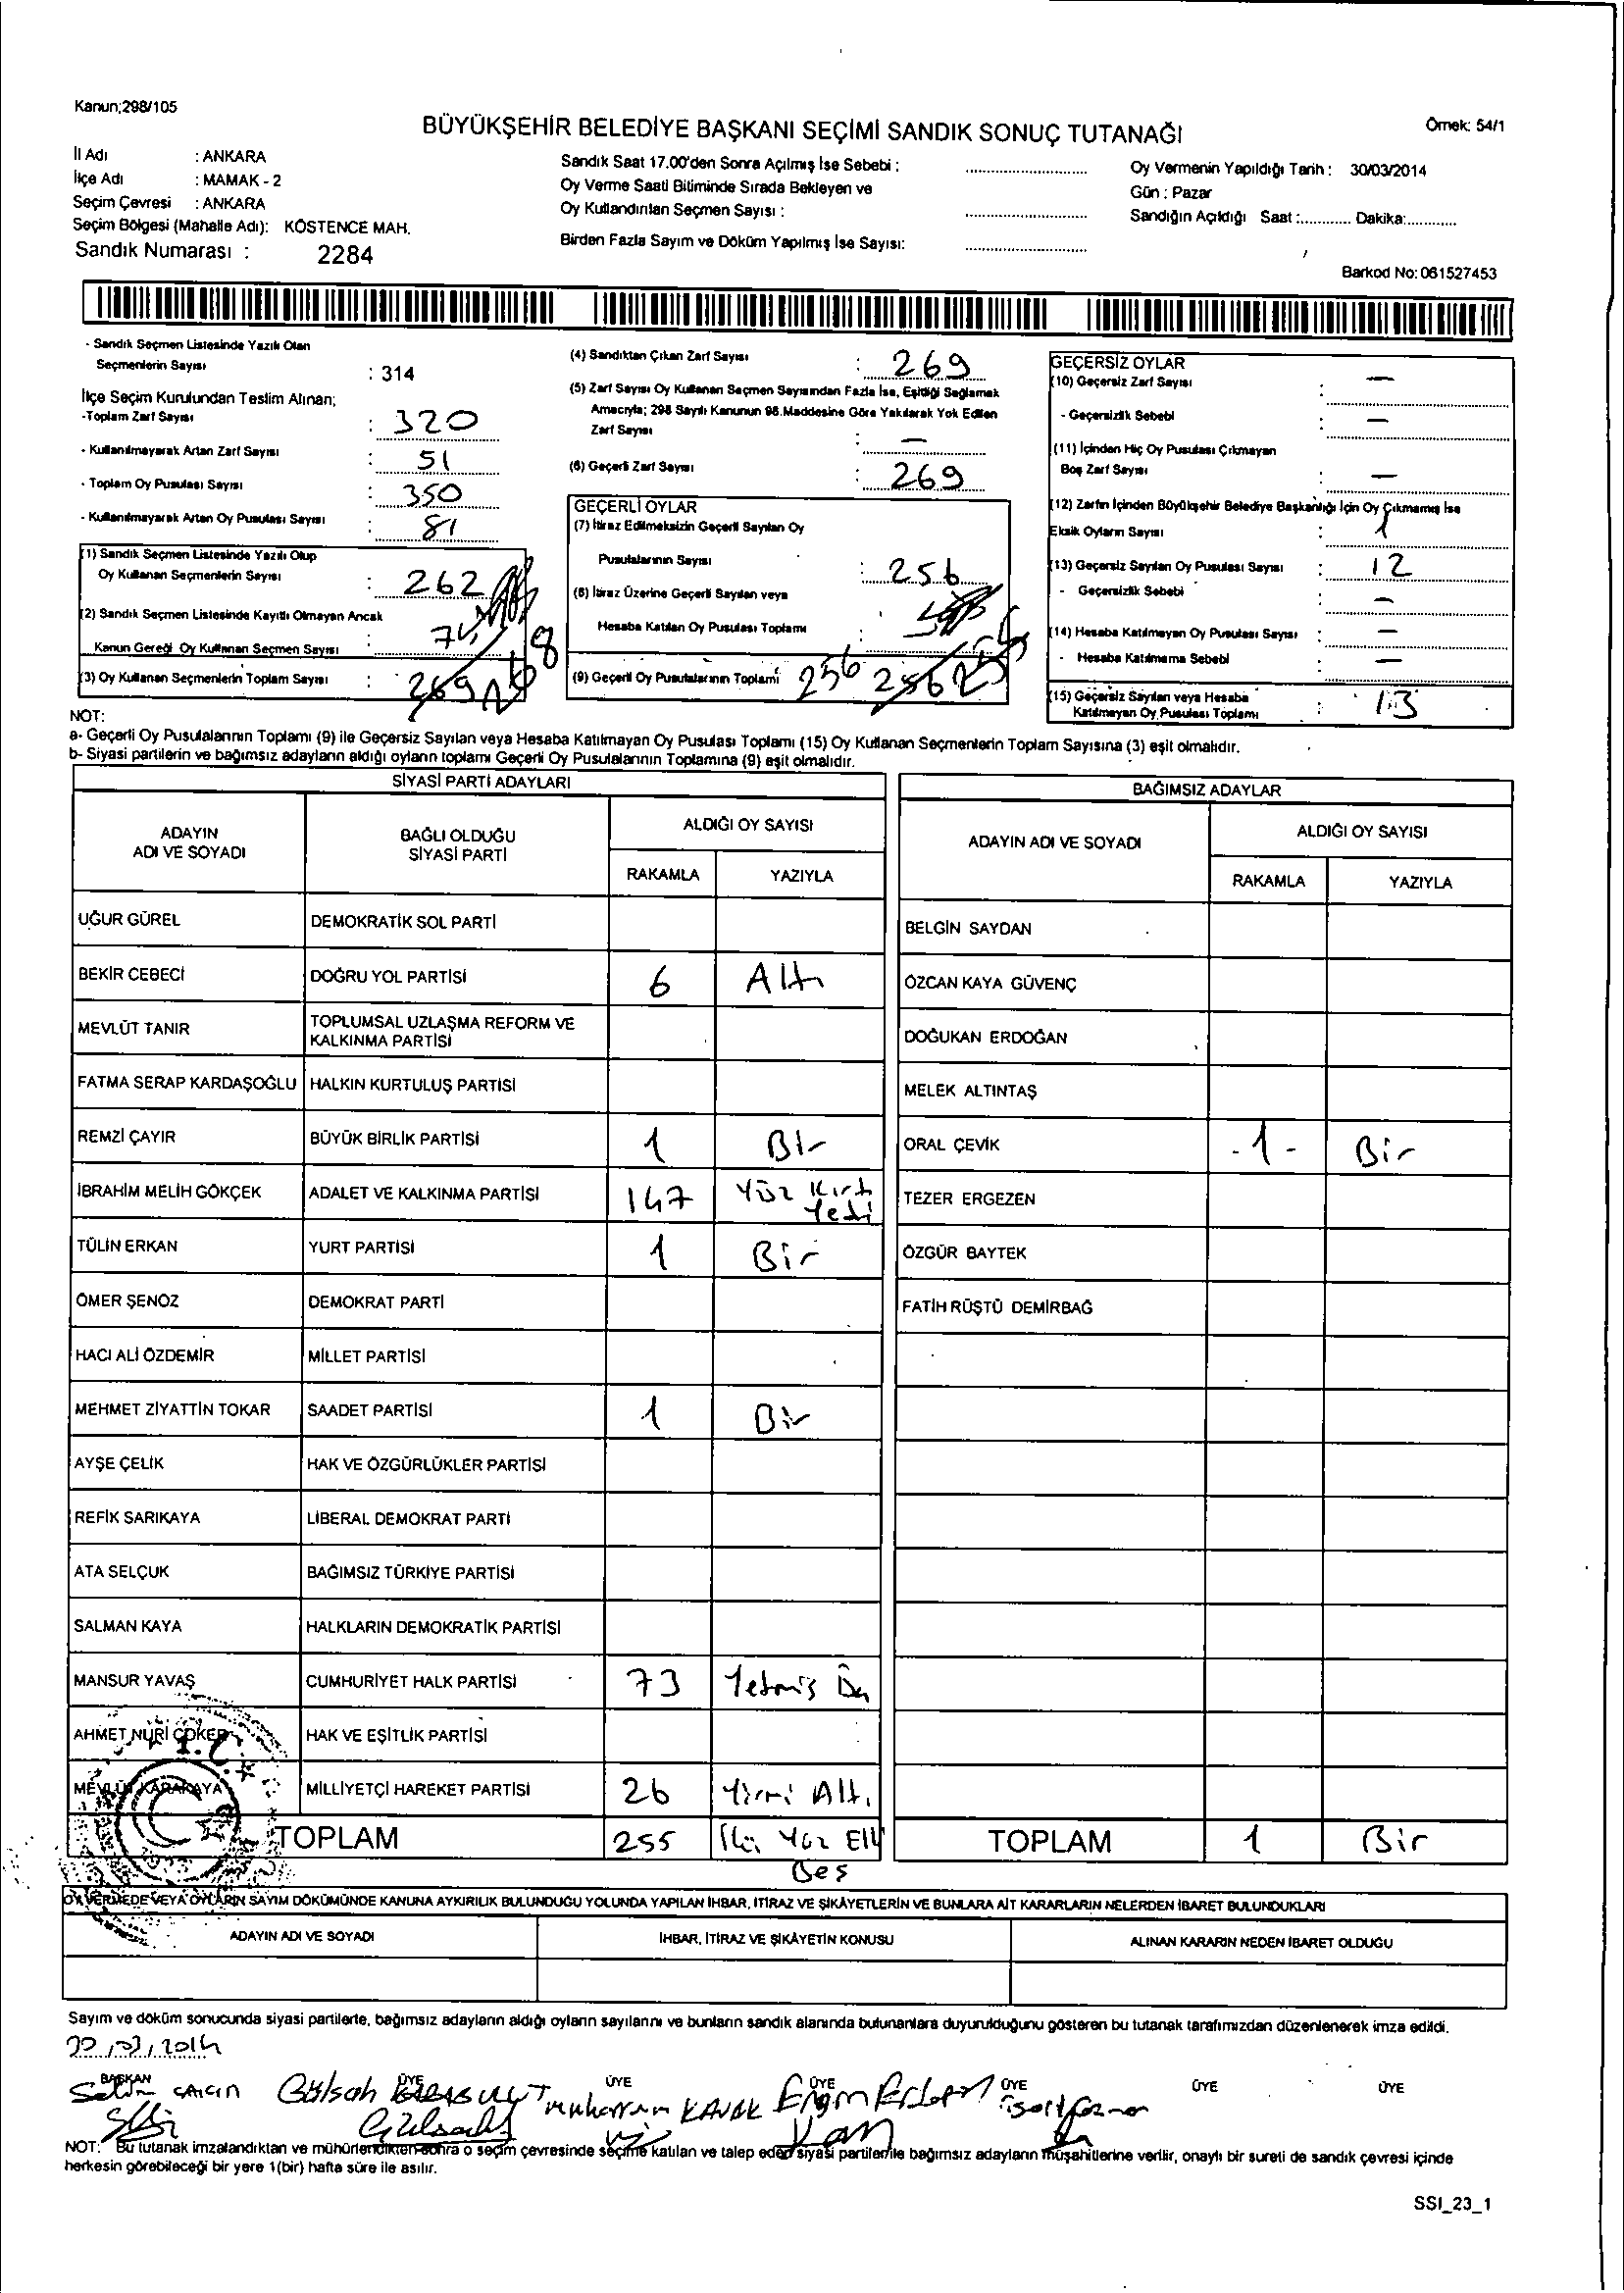 Kanun;298/105
BÜYÜKŞEHİR BELEDİYE BAŞKANI SEÇİMİ SANDIK SONUÇ TUTANAĞI
Örnek: 54/1
İl Adı : ANKARA
İlçe Adı : MAMAK - 2
Seçim Çevresi : ANKARA
Seçim Bölgesi (Mahalle Adı): KÖSTENCE MAH.
Sandık Numarası : 2284
Sandık Saat 17.00'den Sonra Açılmış İse Sebebi :
Oy Verme Saati Bitiminde Sırada Bekleyen ve
Oy Kullandırılan Seçmen Sayısı :
Birden Fazla Sayım ve Döküm Yapılmış İse Sayısı:
Oy Vermenin Yapıldığı Tarih : 30/03/2014
Gün : Pazar
Sandığın Açıldığı Saat :............ Dakika:............
Barkod No: 061527453
- Sandık Seçmen Listesinde Yazılı Olan
Seçmenlerin Sayısı : 314
İlçe Seçim Kurulundan Teslim Alınan;
-Toplam Zarf Sayısı : 320
- Kullanılmayarak Artan Zarf Sayısı : 51
- Toplam Oy Pusulası Sayısı : 350
- Kullanılmayarak Artan Oy Pusulası Sayısı : 81
(1) Sandık Seçmen Listesinde Yazılı Olup
Oy Kullanan Seçmenlerin Sayısı : 262
(2) Sandık Seçmen Listesinde Kayıtlı Olmayan Ancak
Kanun Gereği Oy Kullanan Seçmen Sayısı :
(3) Oy Kullanan Seçmenlerin Toplam Sayısı : 269
(4) Sandıktan Çıkan Zarf Sayısı : 269
(5) Zarf Sayısı Oy Kullanan Seçmen Sayısından Fazla İse, Eşitliği Sağlamak
Amacıyla; 298 Sayılı Kanunun 98.Maddesine Göre Yakılarak Yok Edilen
Zarf Sayısı : —
(6) Geçerli Zarf Sayısı : 269
GEÇERLİ OYLAR
(7) İtiraz Edilmeksizin Geçerli Sayılan Oy
Pusulalarının Sayısı : 256
(8) İtiraz Üzerine Geçerli Sayılan veya
Hesaba Katılan Oy Pusulası Toplamı :
(9) Geçerli Oy Pusulalarının Toplamı 256 256
GEÇERSİZ OYLAR
(10) Geçersiz Zarf Sayısı : —
- Geçersizlik Sebebi : —
(11) İçinden Hiç Oy Pusulası Çıkmayan
Boş Zarf Sayısı : —
(12) Zarfın İçinden Büyükşehir Belediye Başkanlığı İçin Oy Çıkmamış İse
Eksik Oyların Sayısı : 1
(13) Geçersiz Sayılan Oy Pusulası Sayısı : 12
- Geçersizlik Sebebi : —
(14) Hesaba Katılmayan Oy Pusulası Sayısı : —
- Hesaba Katılmama Sebebi : —
(15) Geçersiz Sayılan veya Hesaba
Katılmayan Oy Pusulası Toplamı : 13
NOT:
a- Geçerli Oy Pusulalarının Toplamı (9) ile Geçersiz Sayılan veya Hesaba Katılmayan Oy Pusulası Toplamı (15) Oy Kullanan Seçmenlerin Toplam Sayısına (3) eşit olmalıdır.
b- Siyasi partilerin ve bağımsız adayların aldığı oyların toplamı Geçerli Oy Pusulalarının Toplamına (9) eşit olmalıdır.
SİYASİ PARTİ ADAYLARI
ADAYIN ADI VE SOYADI BAĞLI OLDUĞU SİYASİ PARTİ ALDIĞI OY SAYISI
RAKAMLA YAZIYLA
UĞUR GÜREL DEMOKRATİK SOL PARTİ
BEKİR CEBECİ DOĞRU YOL PARTİSİ 6 Altı
MEVLÜT TANIR TOPLUMSAL UZLAŞMA REFORM VE
KALKINMA PARTİSİ
FATMA SERAP KARDAŞOĞLU HALKIN KURTULUŞ PARTİSİ
REMZİ ÇAYIR BÜYÜK BİRLİK PARTİSİ 1 Bir
İBRAHİM MELİH GÖKÇEK ADALET VE KALKINMA PARTİSİ 147 Yüz Kırk
Yedi
TÜLİN ERKAN YURT PARTİSİ 1 Bir
ÖMER ŞENÖZ DEMOKRAT PARTİ
HACI ALİ ÖZDEMİR MİLLET PARTİSİ
MEHMET ZİYATTİN TOKAR SAADET PARTİSİ 1 Bir
AYŞE ÇELİK HAK VE ÖZGÜRLÜKLER PARTİSİ
REFİK SARIKAYA LİBERAL DEMOKRAT PARTİ
ATA SELÇUK BAĞIMSIZ TÜRKİYE PARTİSİ
SALMAN KAYA HALKLARIN DEMOKRATİK PARTİSİ
MANSUR YAVAŞ CUMHURİYET HALK PARTİSİ 73 Yetmiş Üç
AHMET NURİ ÇÖKER HAK VE EŞİTLİK PARTİSİ
T.C.
MEVLÜT KARAKAYA MİLLİYETÇİ HAREKET PARTİSİ 26 Yirmi Altı
TOPLAM 255 İki Yüz Elli
Beş
BAĞIMSIZ ADAYLAR
ADAYIN ADI VE SOYADI ALDIĞI OY SAYISI
RAKAMLA YAZIYLA
BELGİN SAYDAN
ÖZCAN KAYA GÜVENÇ
DOĞUKAN ERDOĞAN
MELEK ALTINTAŞ
ORAL ÇEVİK -1- Bir
TEZER ERGEZEN
ÖZGÜR BAYTEK
FATİH RÜŞTÜ DEMİRBAĞ
TOPLAM 1 Bir
OY VERMEDE VEYA OYLARIN SAYIM DÖKÜMÜNDE KANUNA AYKIRILIK BULUNDUĞU YOLUNDA YAPILAN İHBAR, İTİRAZ VE ŞİKÂYETLERİN VE BUNLARA AİT KARARLARIN NELERDEN İBARET BULUNDUKLARI
ADAYIN ADI VE SOYADI İHBAR, İTİRAZ VE ŞİKÂYETİN KONUSU ALINAN KARARIN NEDEN İBARET OLDUĞU
Sayım ve döküm sonucunda siyasi partilerle, bağımsız adayların aldığı oyların sayılarını ve bunların sandık alanında bulunanlara duyurulduğunu gösteren bu tutanak tarafımızdan düzenlenerek imza edildi.
30/03/2014
BAŞKAN ÜYE ÜYE ÜYE ÜYE ÜYE ÜYE
Gülşah Muharrem KAVAK
NOT: Bu tutanak imzalandıktan ve mühürlendikten sonra o seçim çevresinde seçime katılan ve talep eden siyasi partilerle bağımsız adayların müşahitlerine verilir, onaylı bir sureti de sandık çevresi içinde
herkesin görebileceği bir yere 1(bir) hafta süre ile asılır.
SSI_23_1